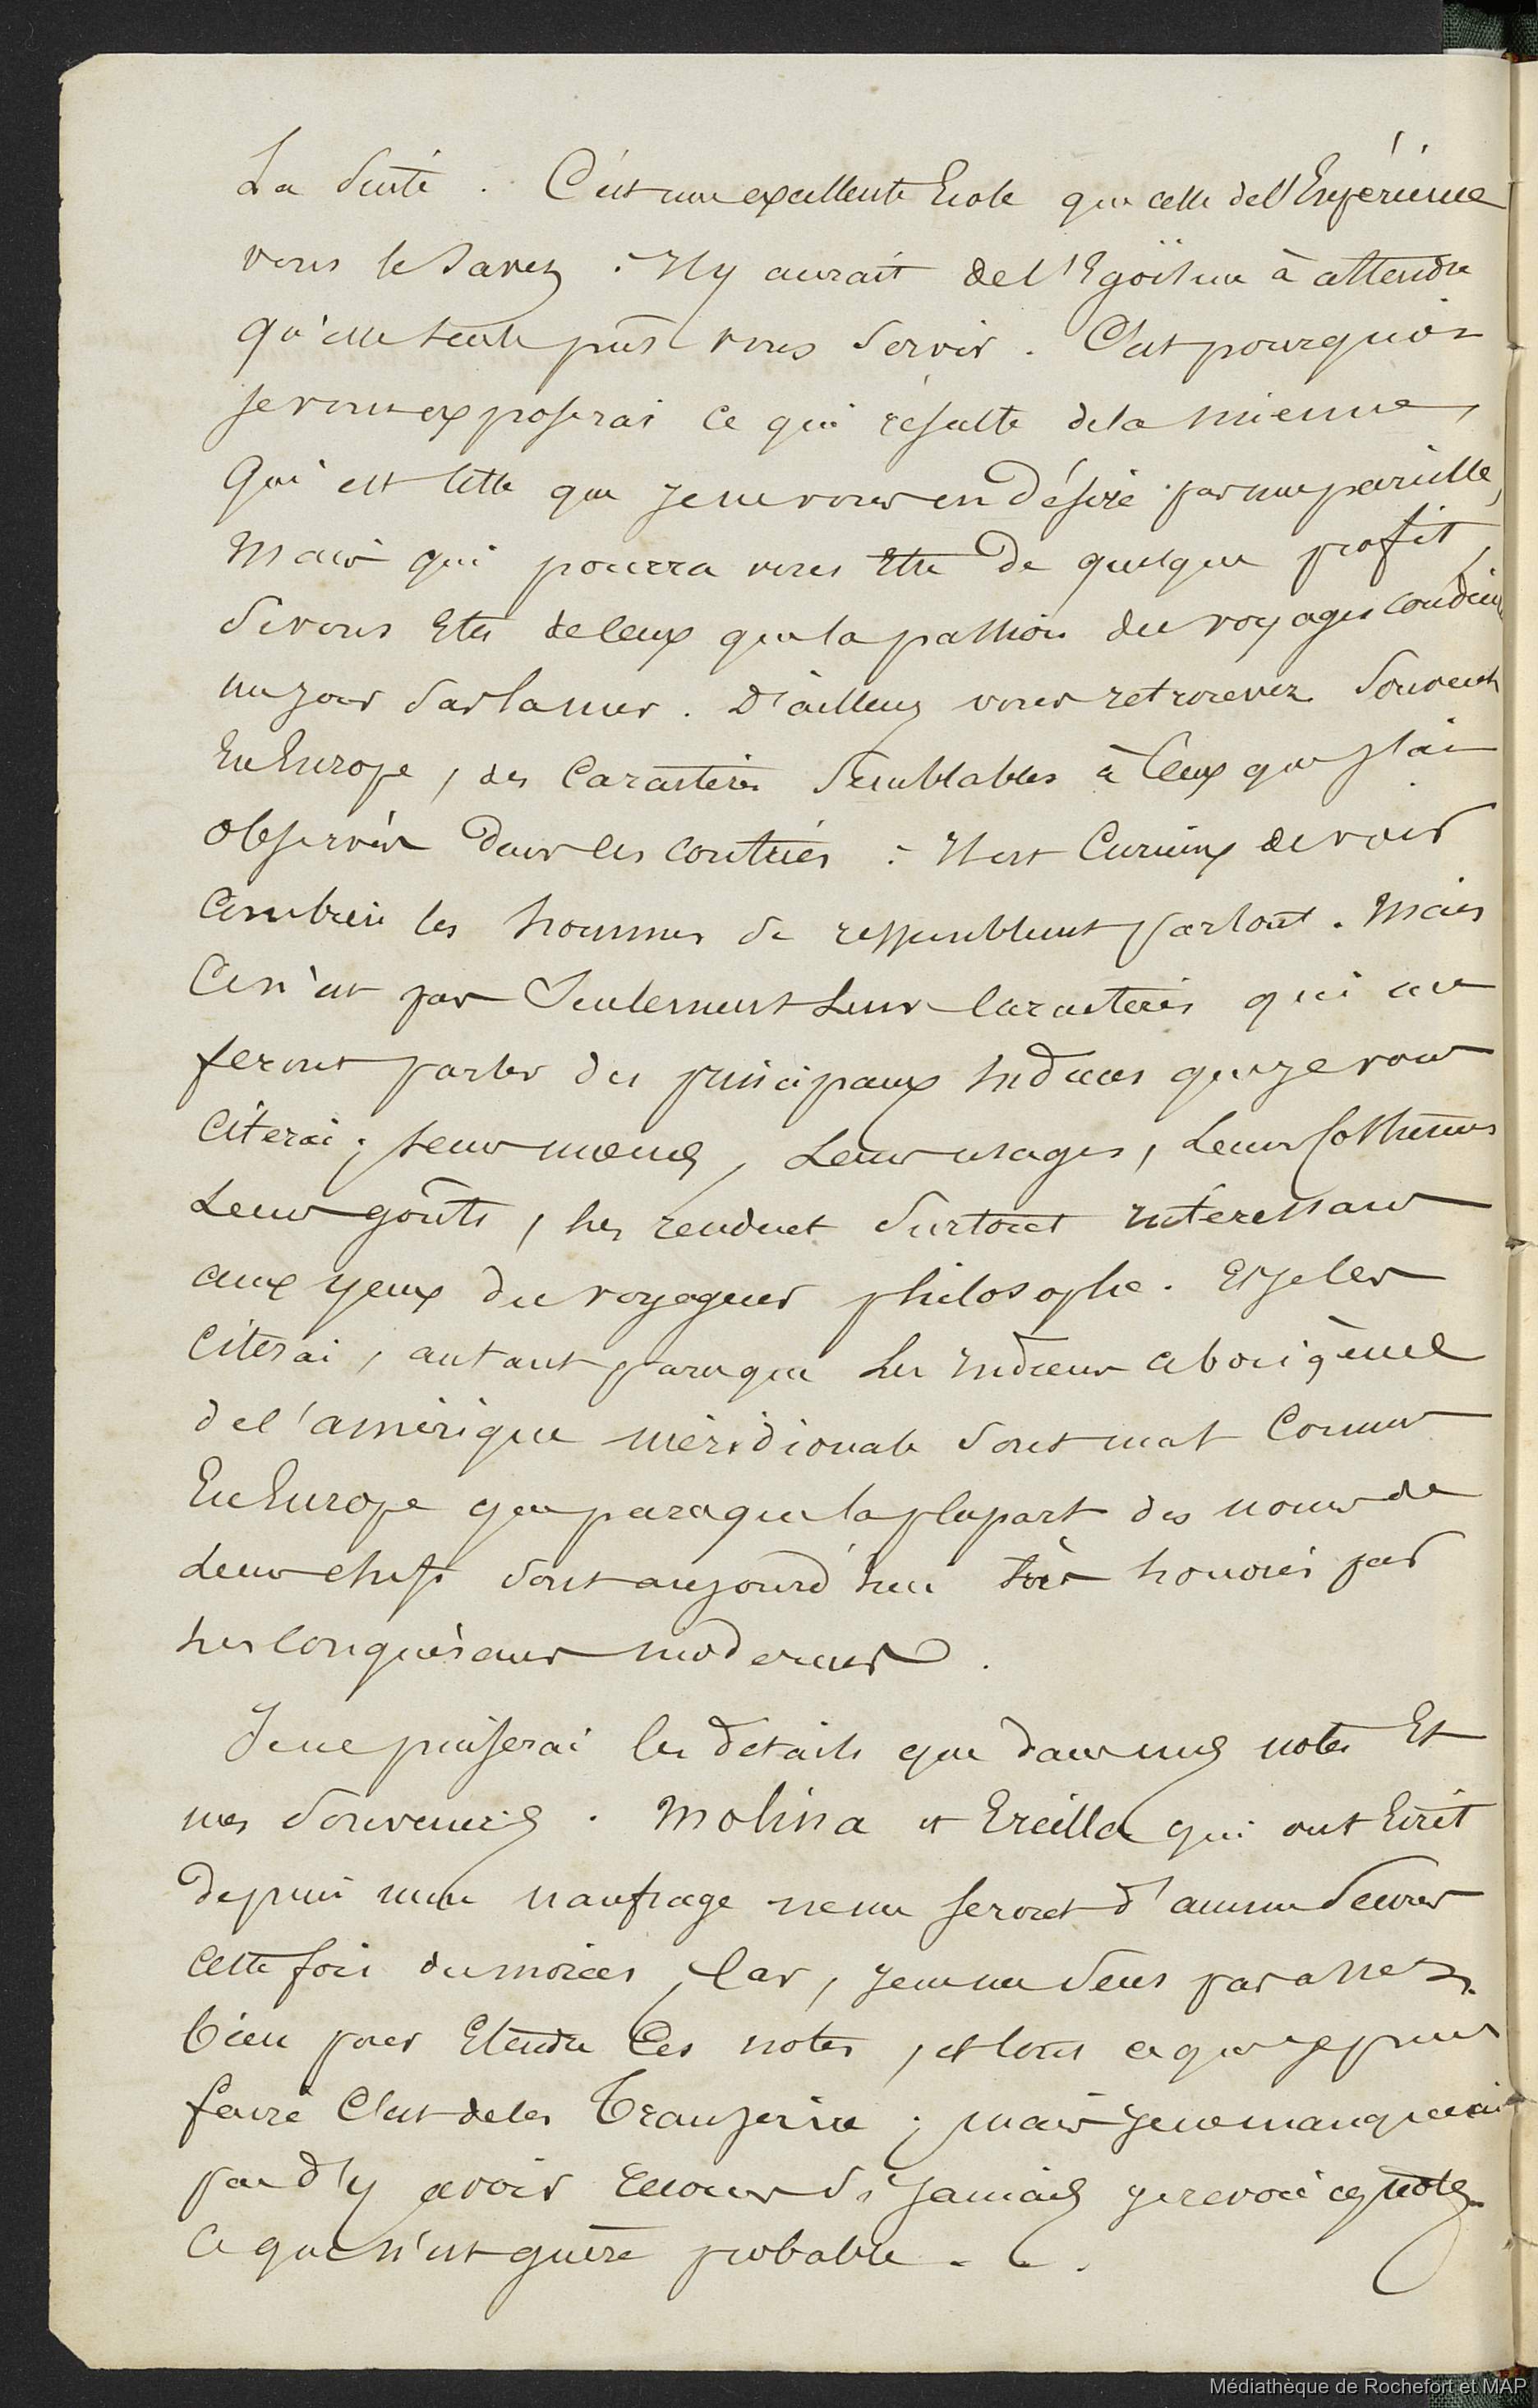 La Suite. C'est une excellente Ecole que celle de l'Expérience
vous le Savez : Il y aurait de l'Egoïsme à attendre
qu'elle seule pût vous Servir. C'est pourquoi
je vous exposerai ce qui résulte de la mienne,
Qui est telle que je ne vous en désire pas une pareille,
Mais qui pourra vous Etre de quelque profit,
Si vous Etes de ceux que la passion des voyages conduira
un jour Sur la mer. D'ailleurs vous retrouverez Souvent
En Europe, des Caractères Semblables à Ceux que j'ai
observés Dans les contrées : Il est Curieux de voir
Combien les hommes se ressemblent partout. Mais
Ce n'est pas Seulement Leurs Caractères qui me
feront parler des principaux Indiens que je vous
Citerai ; leurs moeurs, Leurs usages, Leurs Costumes
Leurs goûts, les rendent Surtout intéressans
aux yeux du voyageur philosophe. Et je les
Citerai, autant parceque Les Indiens aborigènes
de l'amérique méridionale Sont mal Connus
En Europe que parceque la plupart des noms de
Leurs chefs Sont aujourd'hui très honorés par
les Conquérans modernes.
Je ne puiserai les détails que dans mes notes Et
mes Souvenirs. Molina et Ercilla qui ont Ecrit
depuis mon naufrage ne me seront d'aucun Secours
Cette fois du moins, Car, je ne me Sens pas assez
bien pour Etendre Ces notes, et tout ce que je puis
faire C'est de les Transcrire ; mais je ne manquerai
pas d'y avoir recours Si Jamais je revois ces notes
Ce qui n'est guère probable. -
Médiathèque de Rochefort et MAP